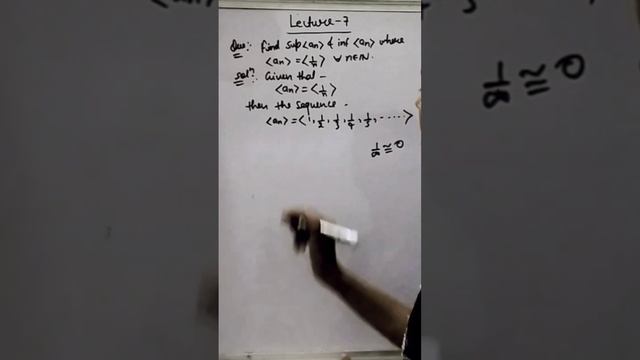 Lecture-7
Que:- Find sup<an> & inf <an> where
<an> = <1/n> ∀ n∈N.
Solⁿ:- Given that -
<an> = <1/n>
then the sequence -
<an> = <1, 1/2, 1/3, 1/4, 1/5, ......>
1/∞ ≅ 0
1/∞ ≅ 0